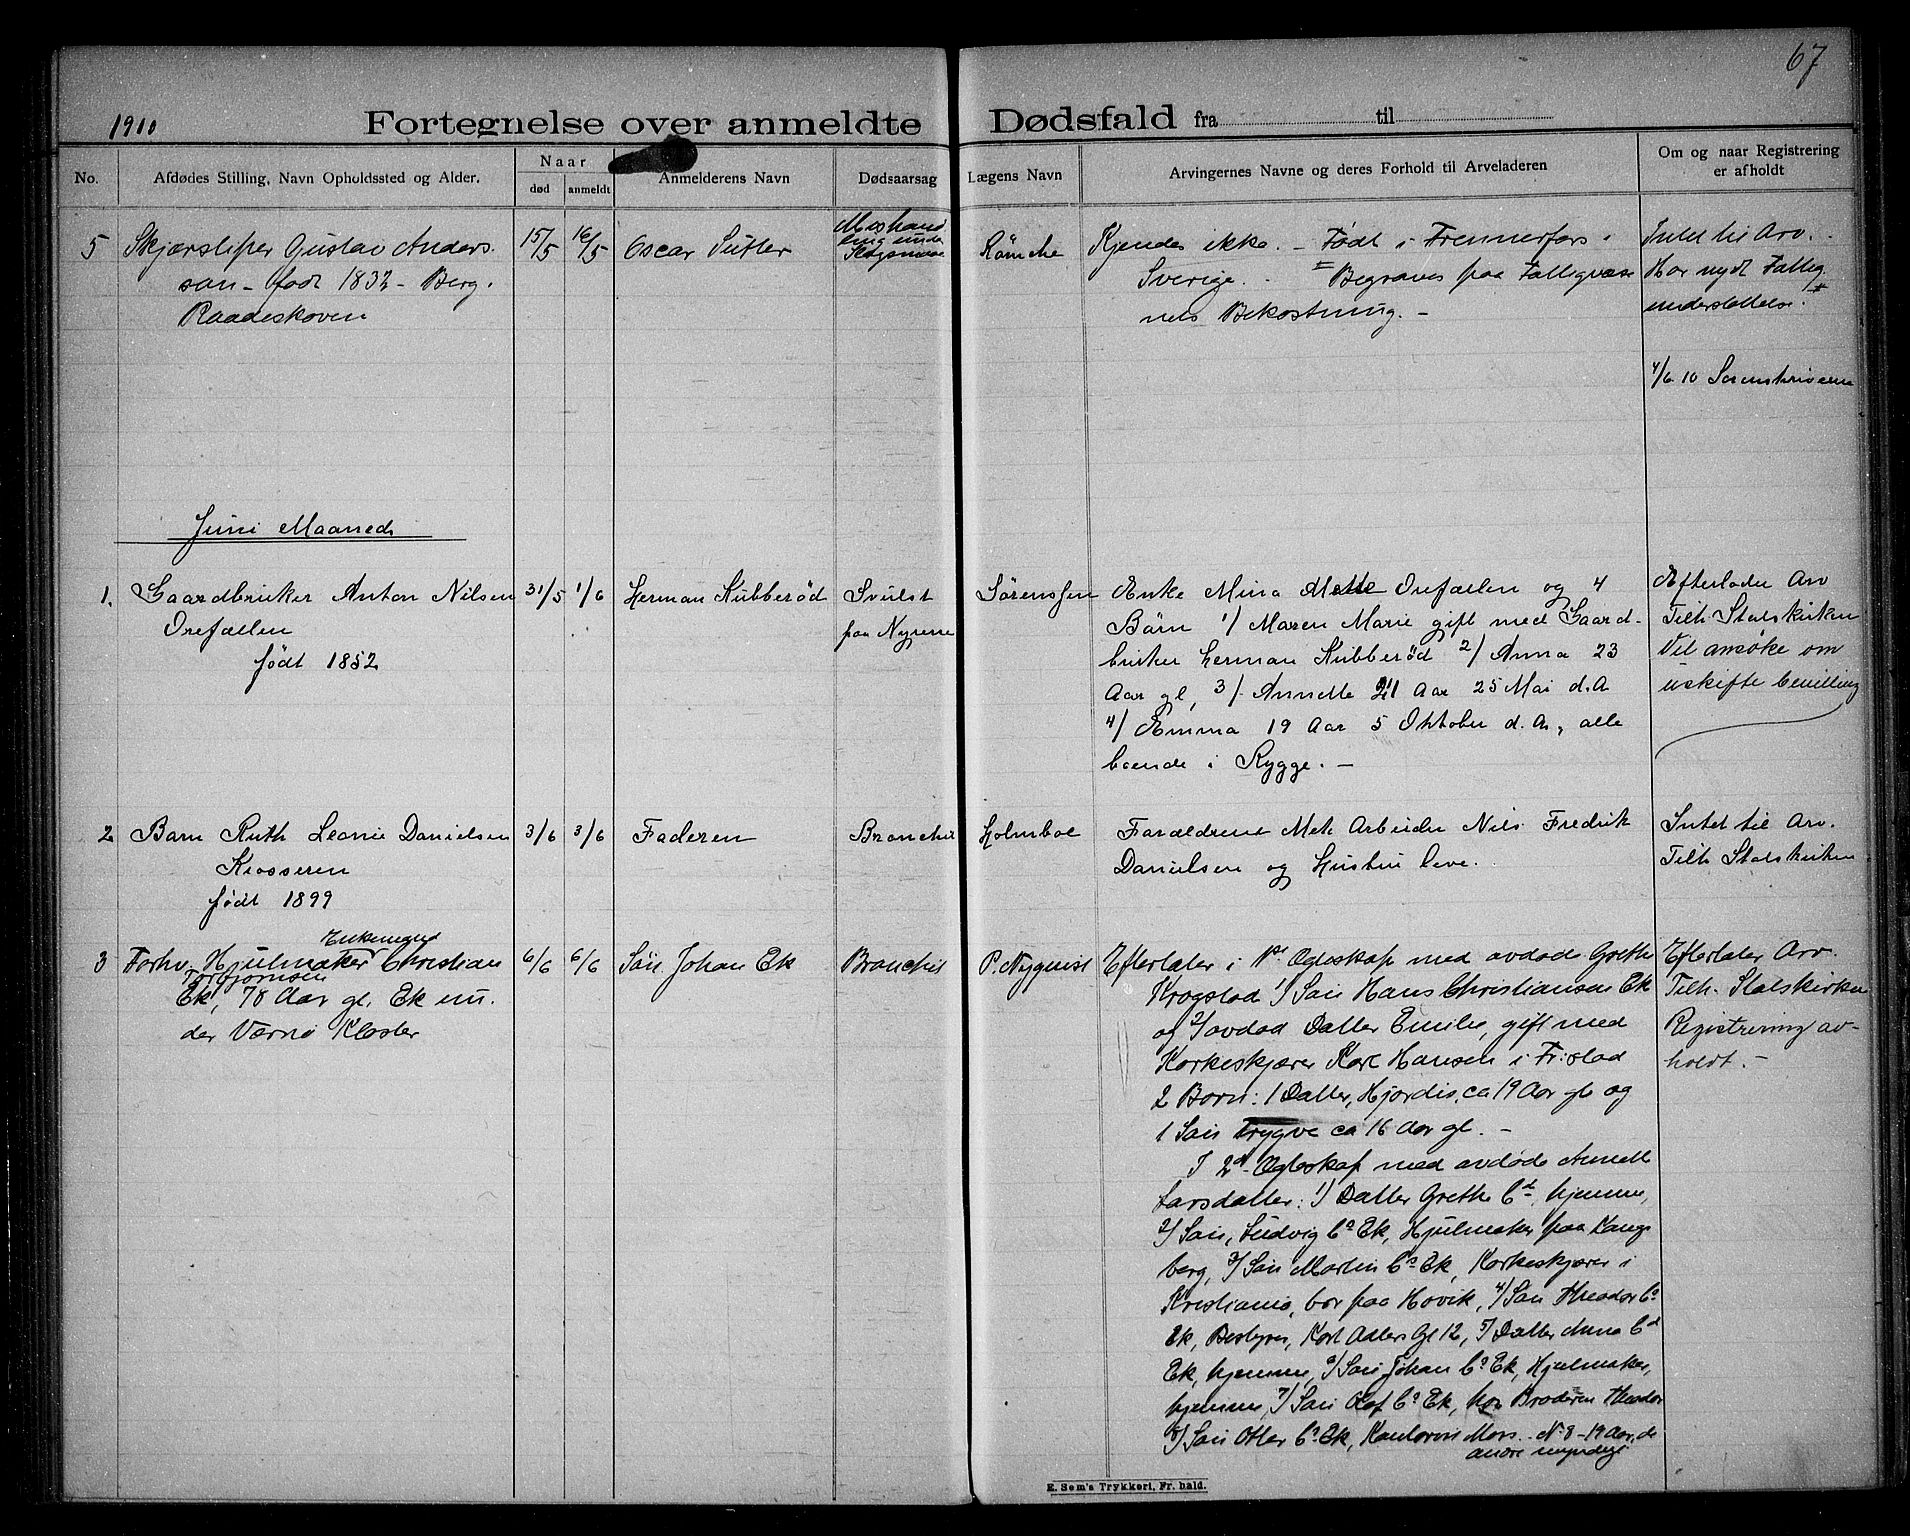 67
1910
Fortegnelse over anmeldte Dødsfald fra til
No.
Afdødes Stilling, Navn Opholdssted og Alder.
Naar
død
anmeldt
Anmelderens Navn
Dødsaarsag
Lægens Navn
Arvingernes Navne og deres Forhold til Arveladeren
Om og naar Registrering
er afholdt
5
Skjærsliper Gustav Anders
son - født 1832 - Berg.
Raadeskoven
15/5
16/5
Oscar Sutter
Mishand
ling under
Rømcke
Kjendes ikke. - Født i Frennerfors i
Sverige. - Begraves paa Fattigvæse
nets Bekostning. -
Intet til Arv.
Har nydt Fattig
understøttelse.
4/6 10 Sorenskriveren
Juni Maaned
1.
Gaardbruker Anton Nilsen
Orefællen
født 1852
31/5
1/6
Herman Kubberød
Svulst
paa Nyrene
Sørenssen
Enke Mina Mette Orefællen og 4
Børn 1/ Maren Marie gift med Gaard-
bruker Herman Kubberød 2/ Anna 23
Aar gl, 3/ Annette 21 Aar 25 Mai d.A
4/ Emma 19 Aar 5 Oktober d. A, alle
boende i Rygge. -
Efterlader Arv
Tilh Statskirken
Vil ansøke om
uskifte bevilling
2
Barn Ruth Leonie Danielsen
Kiosseren
født 1899
3/6
3/6
Faderen
Bronchit
Holmboe
Forældrene Mek Arbeider Nils Fredrik
Danielsen og Hustru leve.
Intet til Arv.
Tilh Statskirken
3
Enkemand
Forhv. Hjulmaker Christian
Torbjørnsen
Ek, 78 Aar gl. Ek un.
der Værnø Kloster
6/6
6/6
Søn Johan Ek
Bronchit
P. Nyquist
Efterlater i 1st Egteskap med avdøde Grethe
Krogstad 1/ Søn Hans Christiansen Ek
og 2/ avdød Datter Emilie, gift med
Korkeskjærer Karl Hansen i Fr:stad
2 Børn: 1 Datter, Hjørdis, ca 19 Aar gl og
1 Søn Trygve ca 16 Aar gl. -
I 2d Egteskap med avdøde Annette
Larsdatter: 1/ Datter Grethe Cd hjemme,
2/ Søn, Ludvig Cs Ek, Hjulmaker paa Kongs
berg, 3/ Søn Martin Cs Ek, Korkeskjærer i
Kristiania, bor paa Høvik, 4/ Søn Theodor Cs
Ek, Bestyrer, Kort Adlers Gt 12, 5/ Datter Anna Cd
Ek, hjemme, 6/ Søn Johan Cs Ek, Hjulmaker,
hjemme, 7/ Søn Olaf Cs Ek, hos Broderen Theodor
8/ Søn Otter Cs Ek, Kontorist Moss. - No 8 - 19 Aar, de
andre myndige
Efterlater Arv.
Tilh. Statskirken
Registrering av-
holdt. -
E. Sem's Trykkeri, Fr. hald.